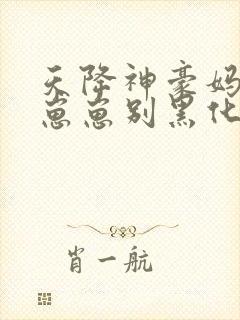 天降神豪妈
崽崽别黑化
肖一航